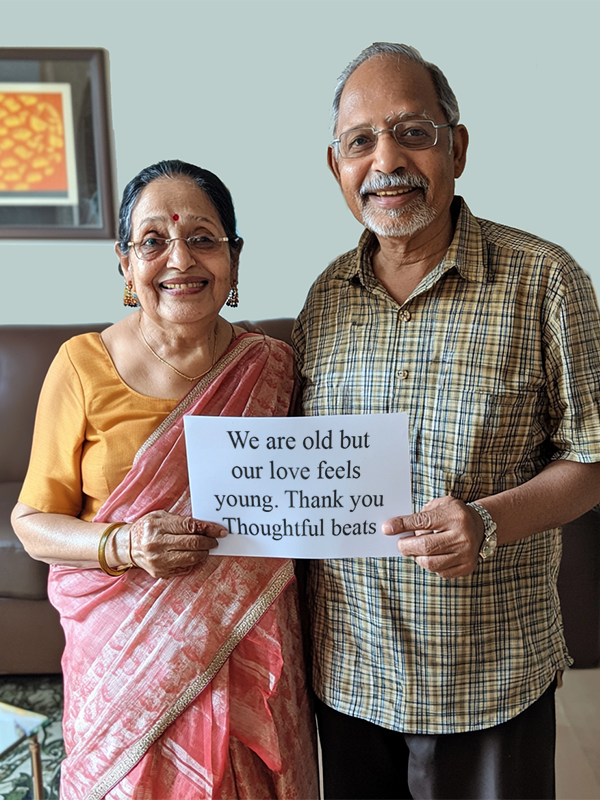 We are old but
our love feels
young. Thank you
Thoughtful beats